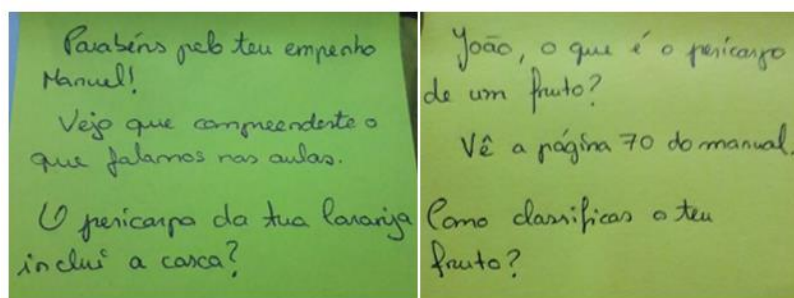 Parabéns pelo teu empenho
Manuel!
Vejo que compreendeste o
que falamos nas aulas.
O pericarpo da tua laranja
inclui a casca?
João, o que é o pericarpo
de um fruto?
Vê a página 70 do manual.
Como classificas o teu
fruto?